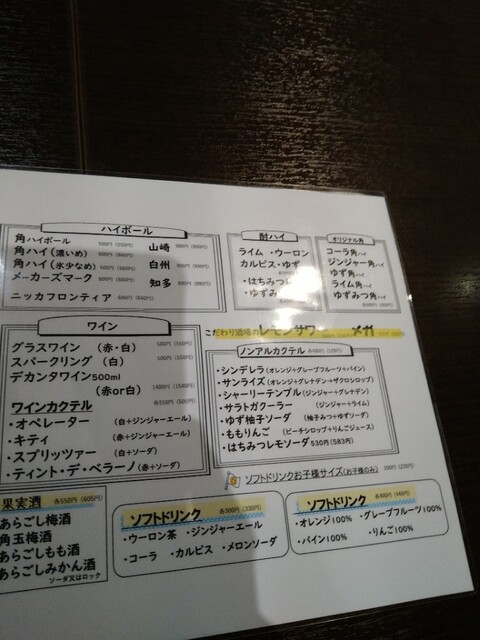 ハイボール
角ハイボール 山崎
角ハイ(濃いめ)
角ハイ(氷少なめ) 白州
メーカーズマーク 知多
ニッカフロンティア
酎ハイ
ライム・ウーロン
カルピス・ゆず
・はちみつレ
・ゆずみつ
オリジナル角
コーラ角ハイ
ジンジャー角ハイ
ゆず角ハイ
ライム角ハイ
ゆずみつ角ハイ
こだわり酒場のレモンサワー メガ
ワイン
グラスワイン (赤・白)
スパークリング (白)
デカンタワイン500ml
(赤or白)
ワインカクテル
・オペレーター (白+ジンジャーエール)
・キティ (赤+ジンジャーエール)
・スプリッツァー (白+ソーダ)
・ティント・デ・ベラーノ (赤+ソーダ)
ノンアルカクテル
・シンデレラ (オレンジ+グレープフルーツ+パイン)
・サンライズ (オレンジ+グレナデンorザクロシロップ)
・シャーリーテンプル (ジンジャー+グレナデン)
・サラトガクーラー (ジンジャー+ライム)
・ゆず柚子ソーダ (柚子みつ+ゆずソーダ)
・ももりんご (ピーチシロップ+りんごジュース)
・はちみつレモソーダ 530円(583円)
ソフトドリンクお子様サイズ(お子様のみ)
果実酒 各550円(605円)
あらごし梅酒
角玉梅酒
あらごしもも酒
あらごしみかん酒
ソーダ又はロック
ソフトドリンク 各300円(330円)
・ウーロン茶 ・ジンジャーエール
・コーラ ・カルピス ・メロンソーダ
ソフトドリンク 各400円(440円)
・オレンジ100% ・グレープフルーツ100%
・パイン100% ・りんご100%